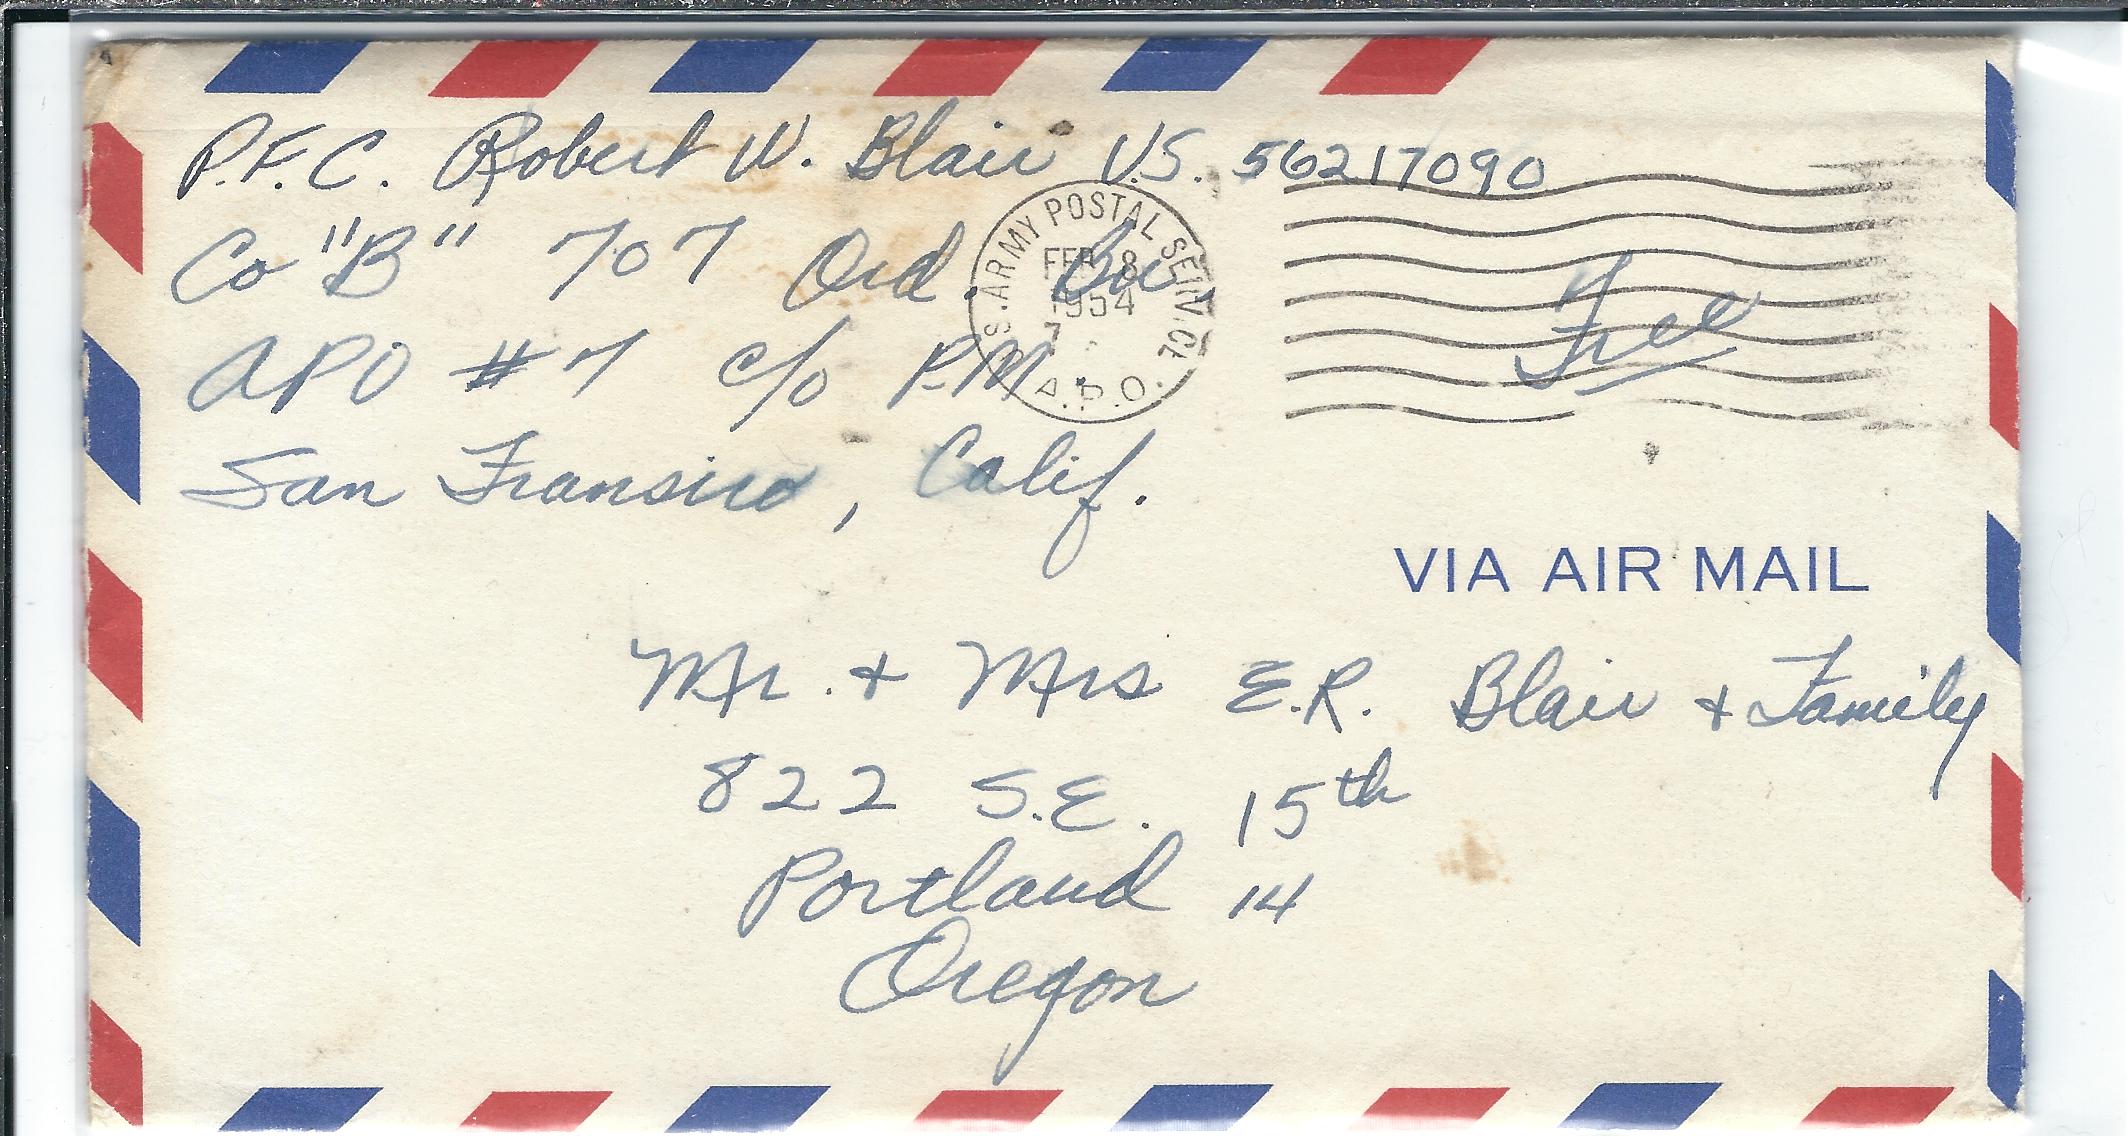 P.F.C. Robert W. Blair U.S. 56217090
Co "B" 707 Ord. Bn.
APO #7 c/o P.M.
San Fransico, Calif.
U.S. ARMY POSTAL SERVICE
FEB 8
1954
7
A.P.O.
Free
VIA AIR MAIL
Mr. + Mrs E.R. Blair + Family
822 S.E. 15th
Portland 14
Oregon